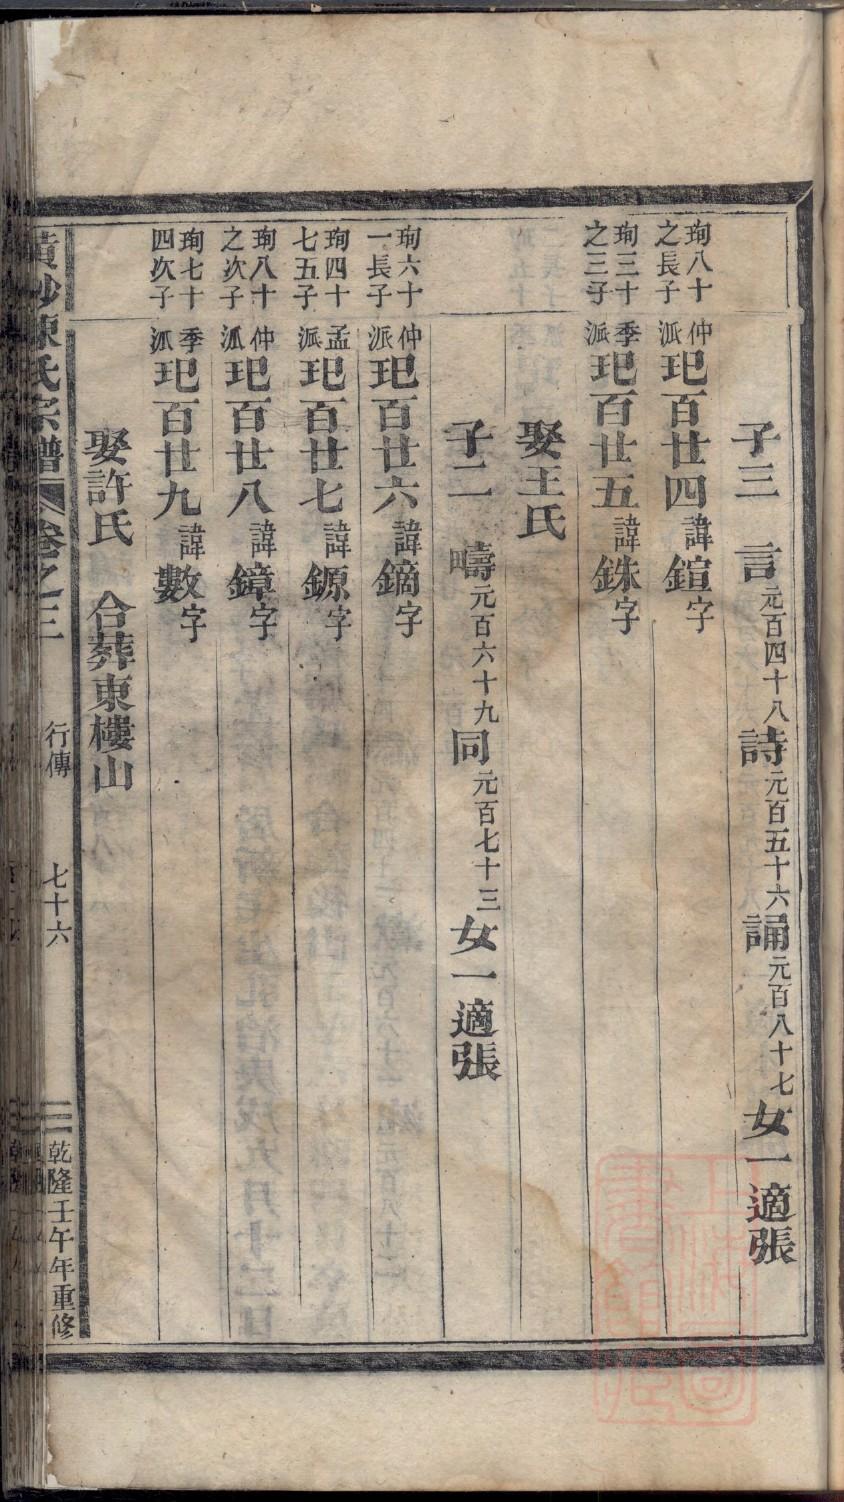 子三 言元百四十八詩元百五十六誦元百八十七女一適張
珣八十之長子 仲派 玘百廿四諱鍹字
珣三十之三子 季派 玘百廿五諱銖字
娶王氏
子二 疇元百六十九同元百七十三女一適張
珣六十一長子 仲派 玘百廿六諱鏑字
珣四十七五子 孟派 玘百廿七諱鎯字
珣八十之次子 仲派 玘百廿八諱鏱字
珣七十四次子 季派 玘百廿九諱數字
娶許氏 合葬東樓山
陳氏宗譜 卷之三 行傳 七十六 乾隆壬午年重修
上海圖書館藏